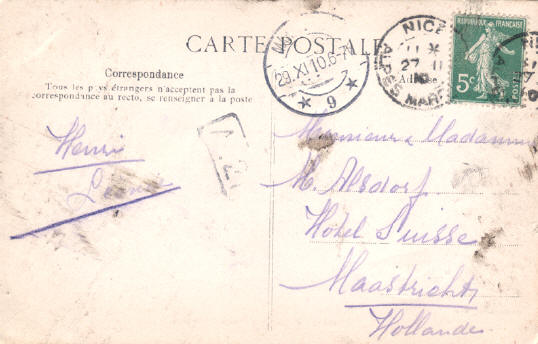 CARTE POSTALE
Correspondance
Tous les pays étrangers n'acceptent pas la
correspondance au recto, se renseigner à la poste
Adresse
Henri
29.XI.10.6-7
9
NICE
27
ALPES MAR
REPUBLIQUE FRANÇAISE
5c
POSTES
Monsieur & Madame
M. Alsdorf
Hôtel Suisse
Maastricht
Hollande